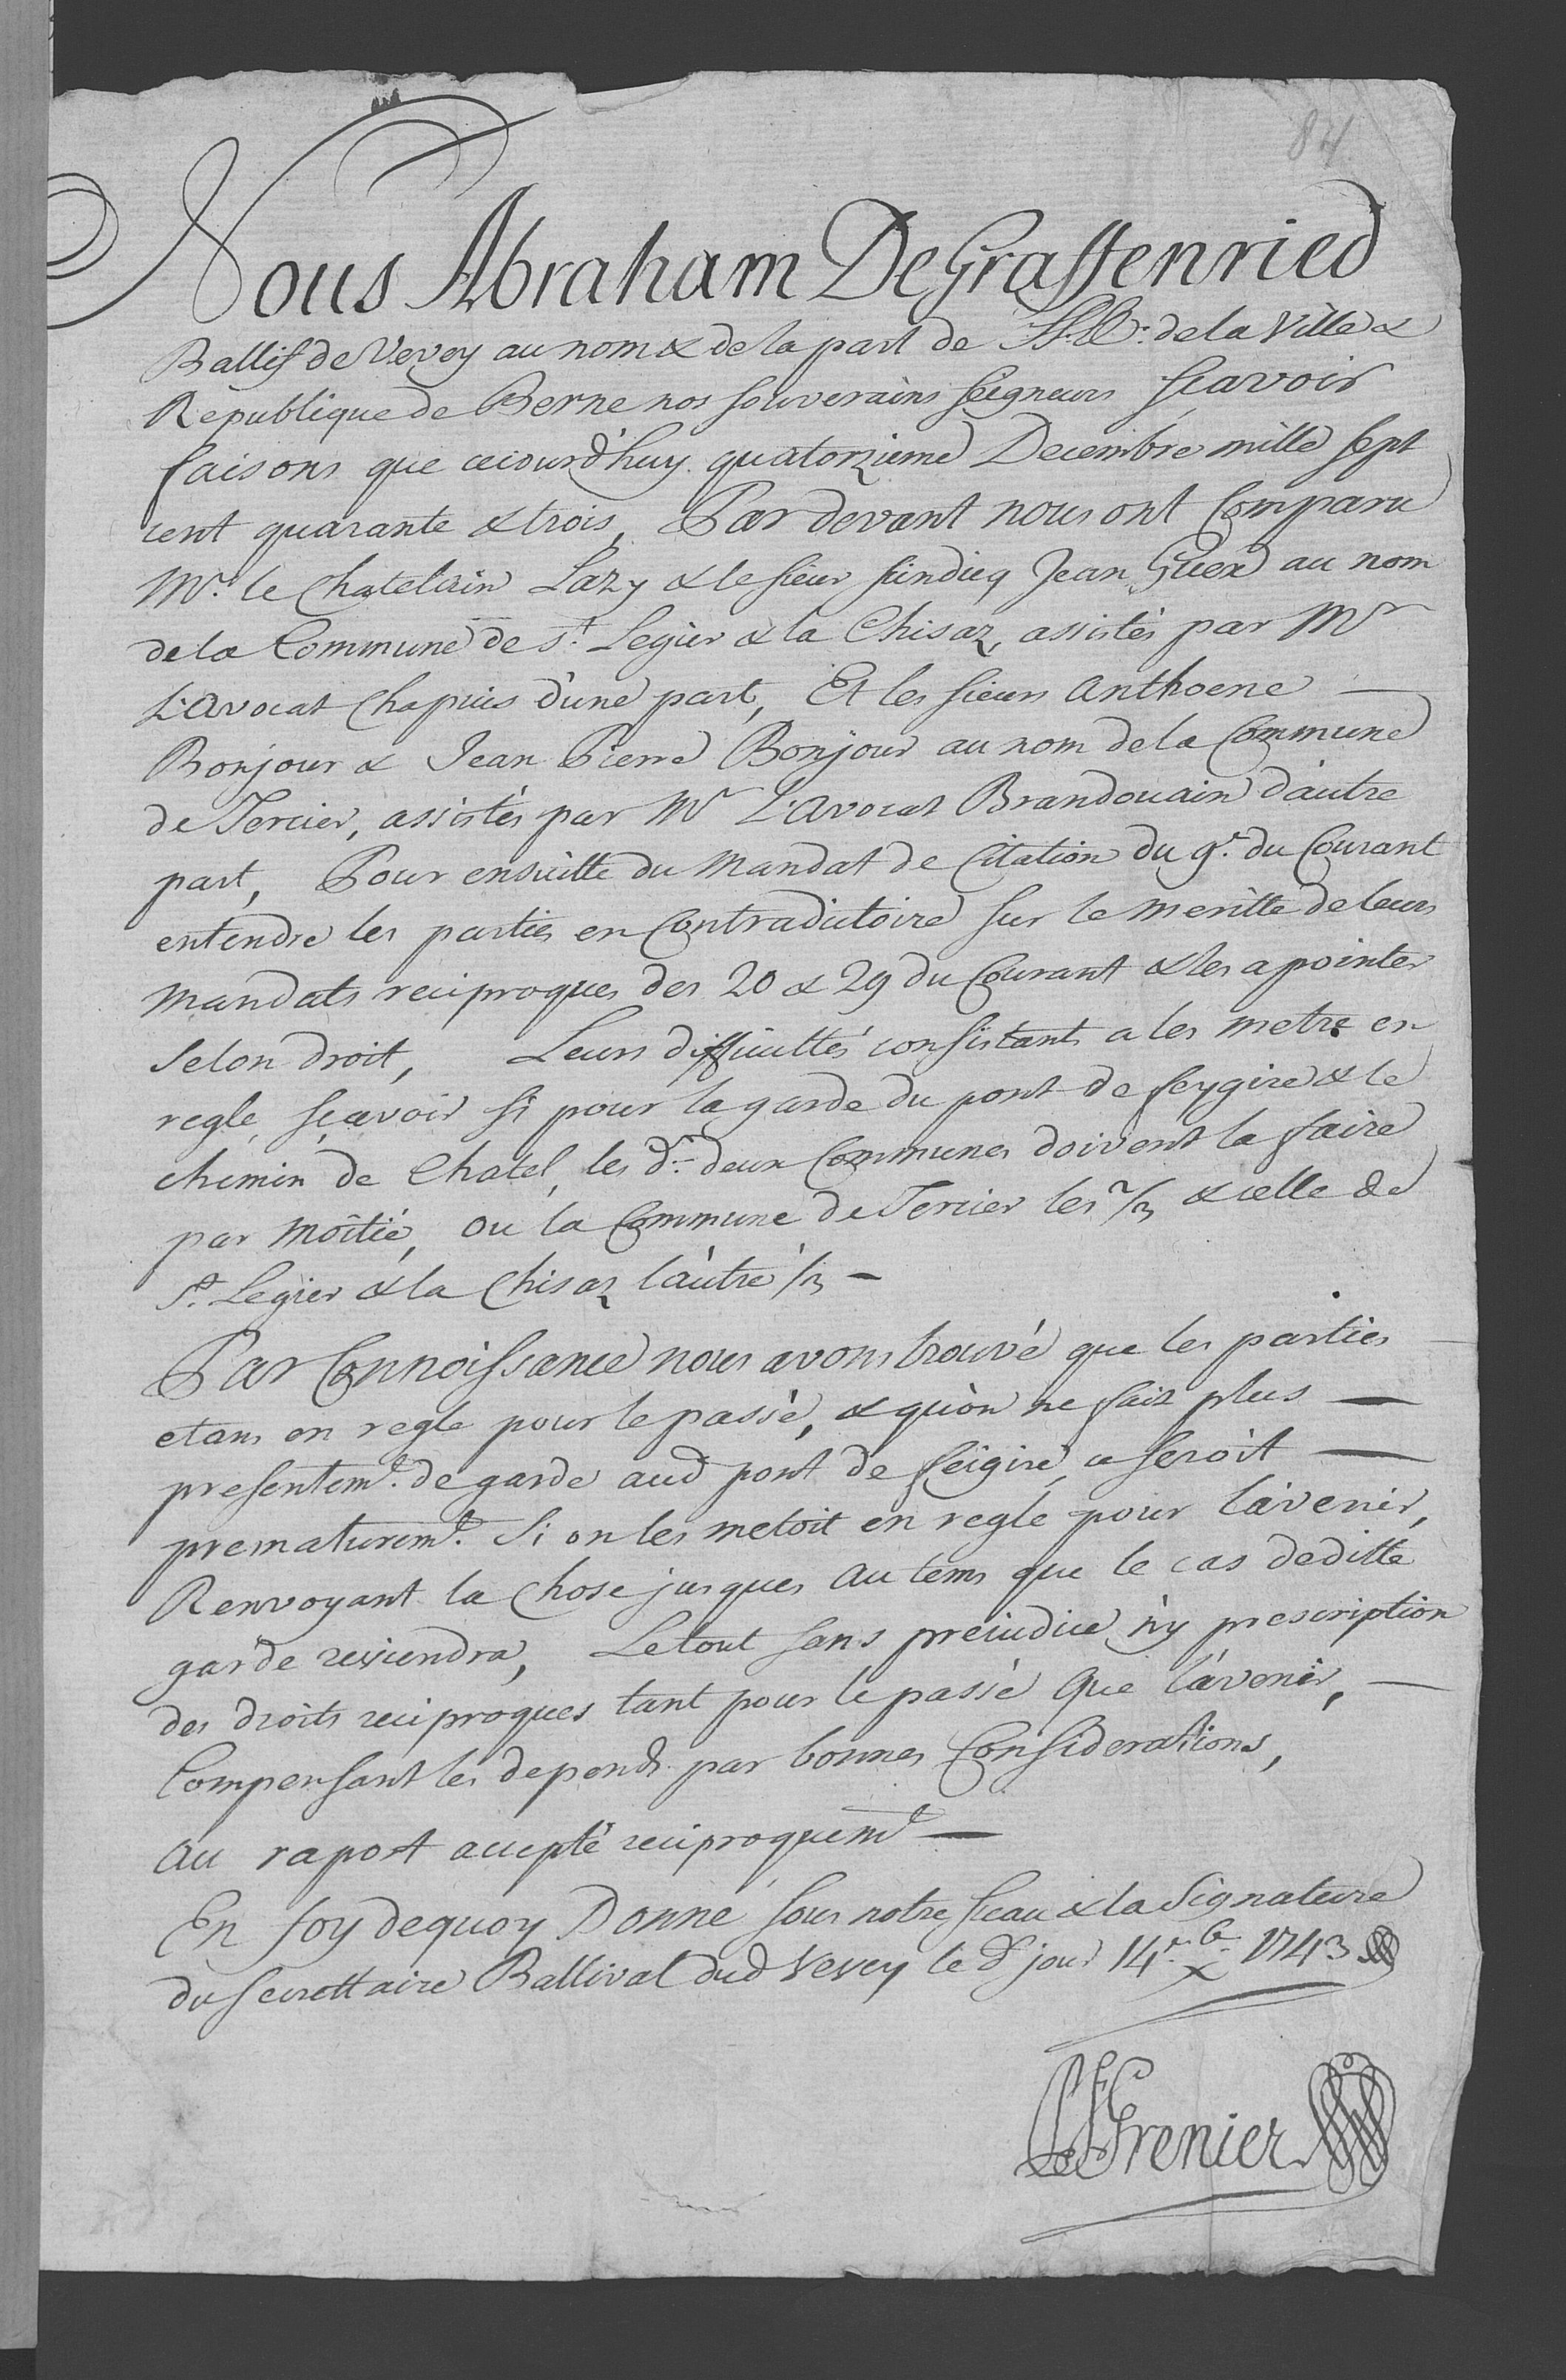 84
Nous Abraham De Graffenried
Ballif de Vevey au nom & de la part de LL.EE: de la Ville &
République de Berne nos souverains seigneurs scavoir
faisons que cejourd'huy quatorzieme Decembre mille sept
cent quarante & trois, Par devant nous ont Comparu
Mr. le Chatelain Lazy & le sieur sindicq Jean Guex au nom
de la Commune de St. Legier & la Chisaz, assistés par Mr
L'avocat Chapuis d'une part, Et les sieurs Anthoene —
Bonjour & Jean Pierre Bonjour au nom de la Commune
de Tercier, assistés par Mr L'avocat Brandouain d'autre
part, Pour ensuitte du Mandat de Citation du 9e. du Courant
entendre les parties en Contradictoire sur le meritte de leurs
mandats reciproques des 20 & 29 du Courant & les apointer
selon droit, Leurs difficultés consistants a les metre en
regle, sçavoir si pour la garde du pont de feygire & le
chemin de Chatel, les d.es deux Communes doivent la faire
par moitié, ou la Commune de Tercier les 2/3 & celle de
St. Legier & la Chisaz l'autre 1/3 —
Par Connoissance nous avons trouvé que les parties
etans en regle pour le passé, & qu'on ne fait plus —
presentemt. de garde aud pont de feigire, ce seroit —
prematuremt. si on les metoit en regle pour l'avenir,
Renvoyant la Chose jusques au tems que le cas de ditte
garde reviendra, Le tout sans prejudice n'y prescription
des droits reciproques tant pour le passé que l'avenir, —
Compensant les depends par bonnes Considerations,
au raport accepté reciproquemt —
En foy dequoy Donné sous notre sceau & la signature
du secrettaire Ballival dud Vevey le d. jour 14e. Xb. 1743
Grenier